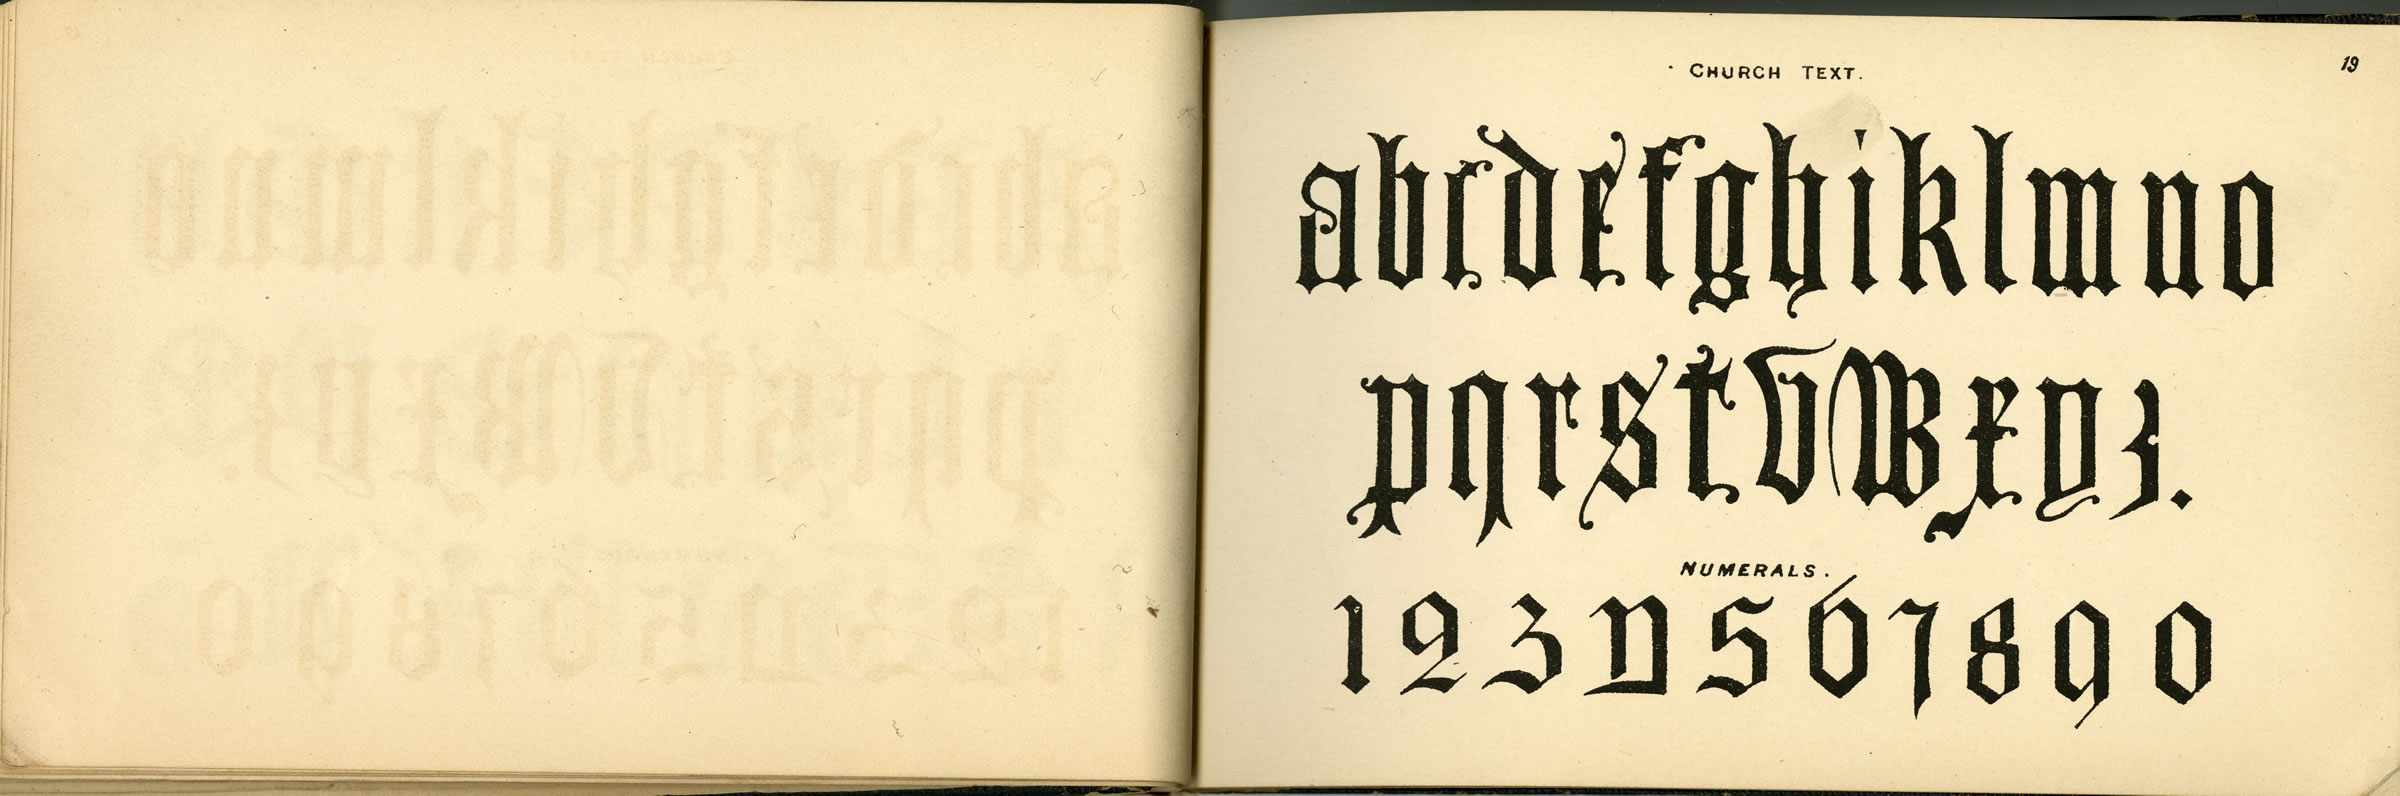 CHURCH TEXT.
19
abcdefghiklmno
pqrstvwxyz.
NUMERALS.
1234567890